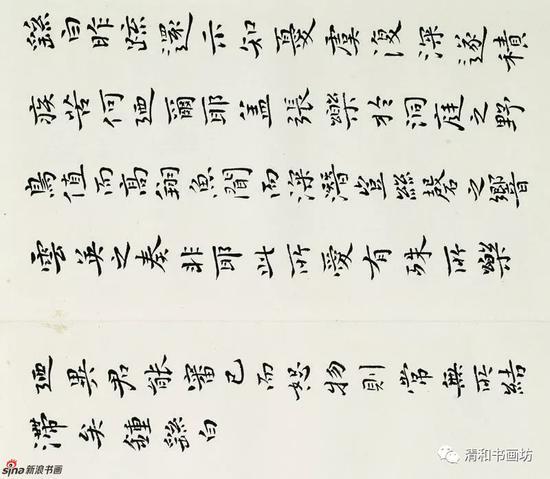 繇白昨疏還示知憂虞復深遂積
疾苦何迺爾耶盖張樂於洞庭之野
鳥值而高翔魚聞而深潛豈絲磬之響
雲英之奏非耶此所愛有殊所樂
迺異君能審己而恕物則常無所結
滯矣鍾繇白
sina新浪书画
清和书画坊